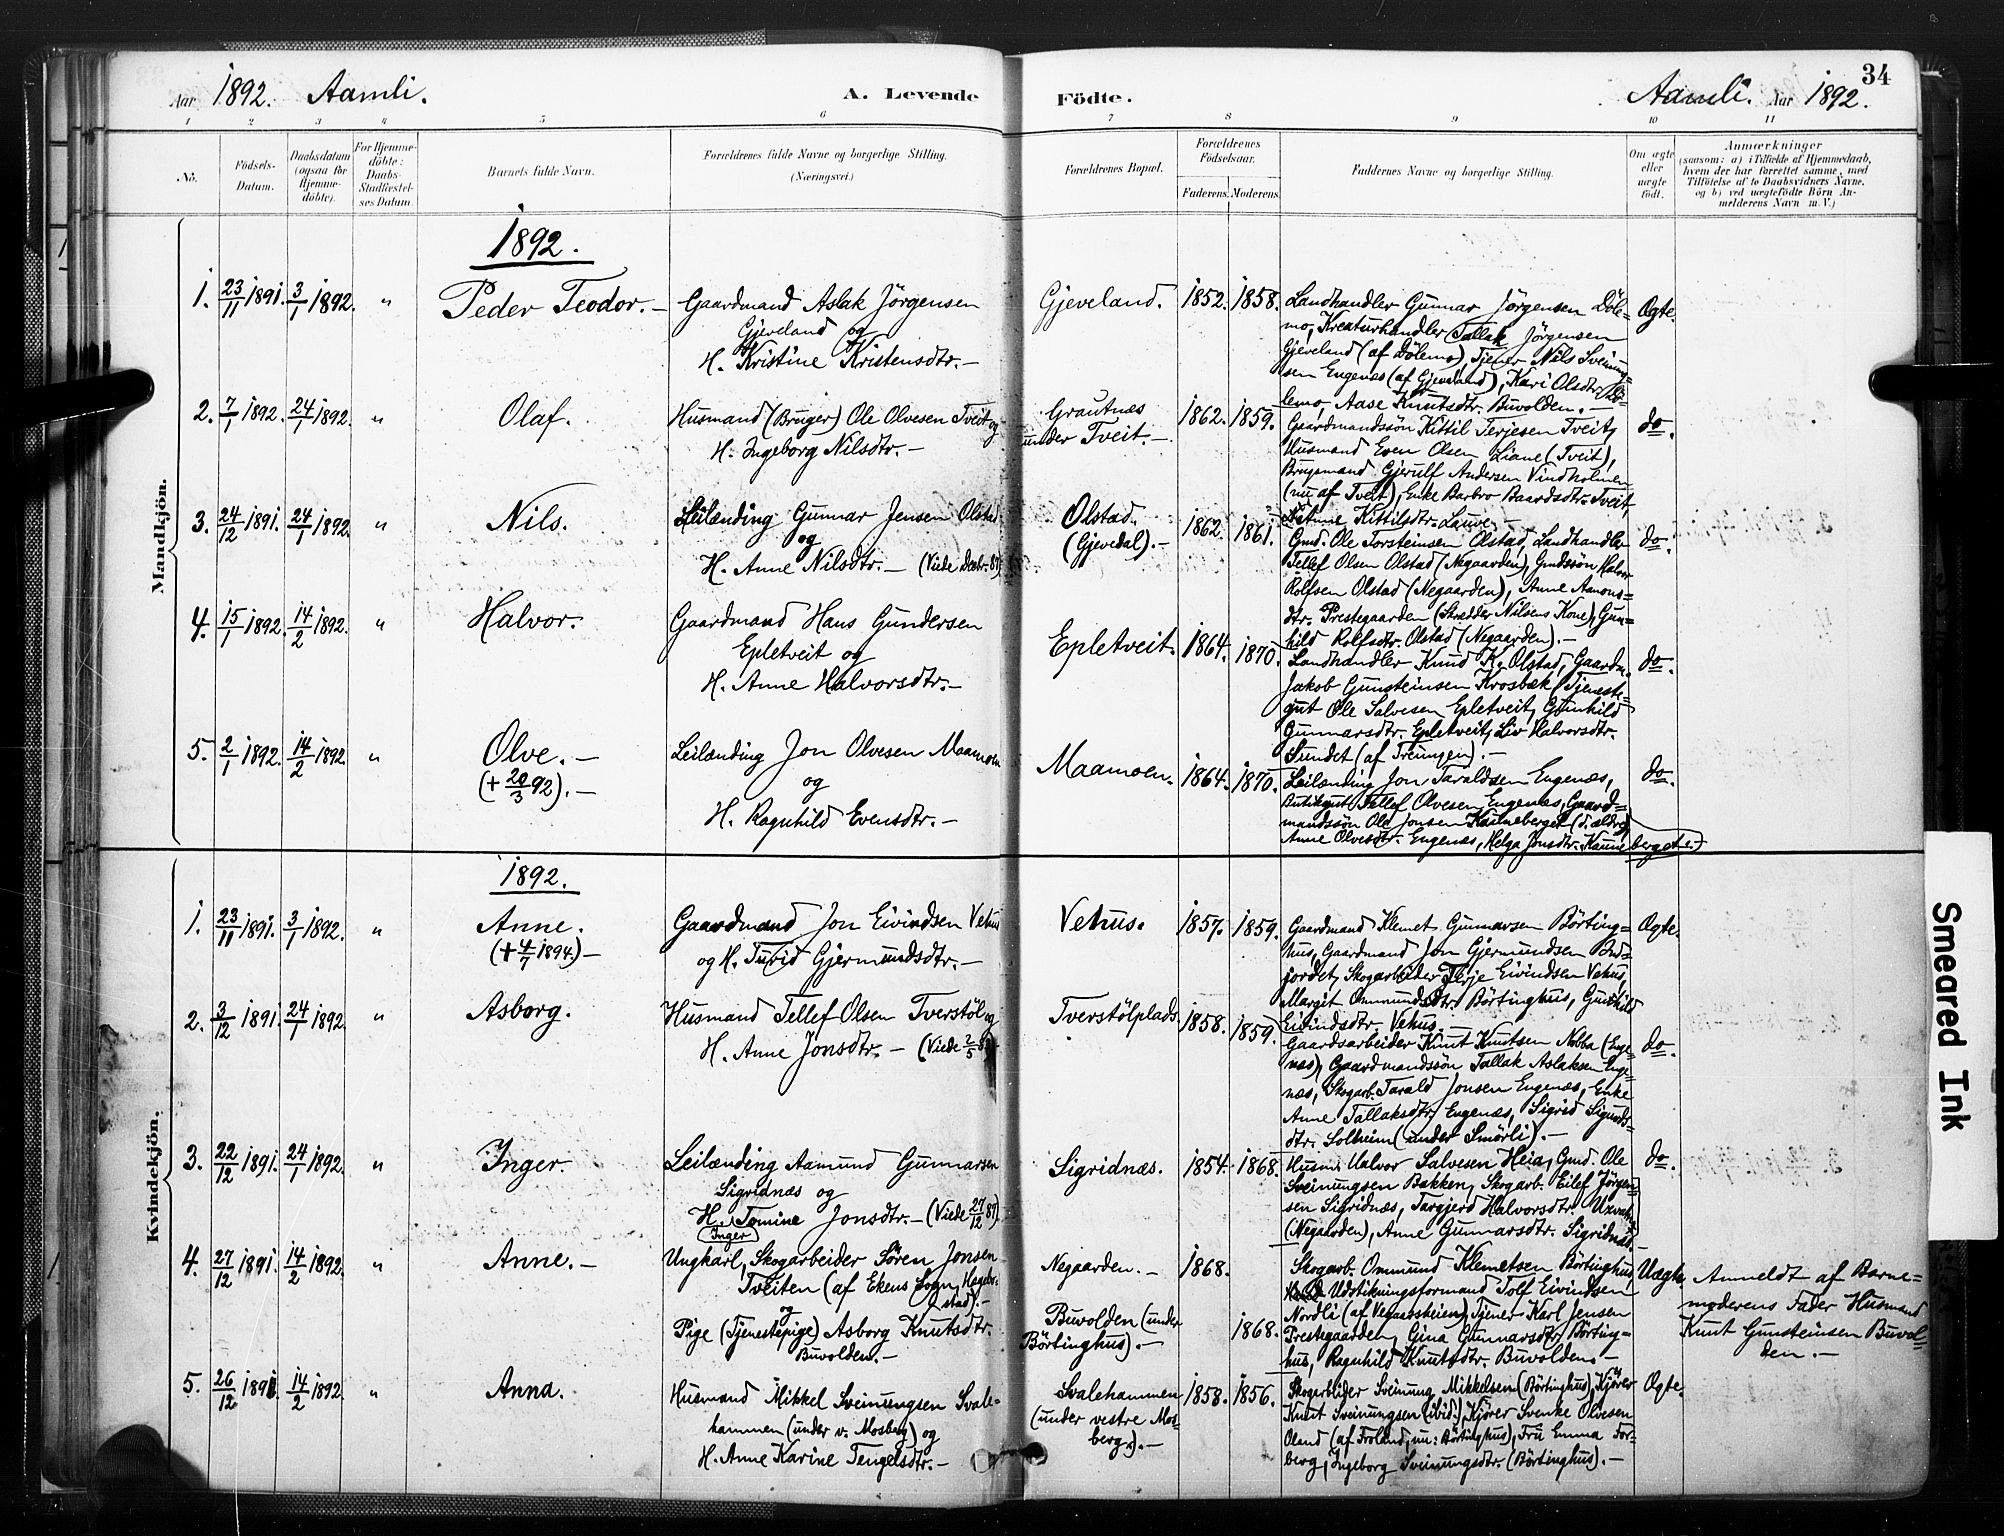 34
Aar 1892. Aamli. A. Levende Födte. Aamli. Aar 1892.
1 2 3 4 5 6 7 8 9 10 11
No.
Födsels-
Datum.
Daabsdatum
(ogsaa for
Hjemme-
döbte).
For Hjemme-
döbte:
Daabs-
Stadfæstel-
ses Datum.
Barnets fulde Navn.
Forældrenes fulde Navne og borgerlige Stilling.
(Næringsvei.)
Forældrenes Bopæl.
Forældrenes
Födselsaar.
Faderens. Moderens.
Faddernes Navne og borgerlige Stilling.
Om ægte
eller
uægte
födt.
Anmærkninger
(saasom: a) i Tilfælde af Hjemmedaab,
hvem der har forrettet samme, med
Tilföielse af to Daabsvidners Navne,
og b) ved uægtefödte Börn An-
melderens Navn m. V.)
Mandkjön.
1892.
1. 23/11 1891. 3/1 1892. " Peder Teodor. –
Gaardmand Aslak Jörgensen
Gjeveland og
H. Kristine Kristensdtr. –
Gjeveland. 1852. 1858.
Landhandler Gunnar Jörgensen Döle-
mo, Kreaturhandler Tallak Jörgensen
Gjeveland (af Dölemo), Tjener Nils Svennung-
sen Engenæs (af Gjeveland), Kari Olsdtr. Dö-
lemo, Aase Knutsdtr. Buvolden. –
Ægte.
2. 7/1 1892. 24/1 1892. " Olaf.
Husmand (Bruger) Ole Olvesen Tveit og
H. Ingeborg Nilsdtr. –
Grautnæs
under Tveit. –
1862. 1859.
Gaardmandssön Kittil Terjesen Tveit,
Husmand Even Olsen Liane (Tveit),
Brugsmand Gjerulf Andersen Vindholmen
(nu af Tveit), Enke Barbro Baardsdtr. Tveit
Anne Kittilsdtr. Lauve. –
do.
3. 24/12 1891. 24/1 1892. " Nils.
Leilænding Gunnar Jensen Olstad
og
H. Anne Nilsdtr. – (Viede Decbr. 87)
Olstad.
(Gjevedal). –
1862. 1861.
Gmd. Ole Torsteinsen Olstad, Landhandler
Tellef Olsen Olstad (Negaarden), Gmdssön Halvor
Rolfsen Olstad (Negaarden), Anne Aanons-
dtr. Prestegaarden (Skrædder Nilsens Kone), Gun-
hild Rolfsdtr. Olstad (Negaarden). –
do.
4. 15/1 1892. 14/2 1892. " Halvor.
Gaardmand Hans Gundersen
Epletveit og
H. Anne Halvorsdtr. –
Epletveit. 1864. 1870.
Landhandler Knud K. Olstad, Gaardm.
Jakob Gunsteinsen Krosbæk, Tjeneste-
gut Ole Salvesen Epletveit, Gunhild
Gunnarsdtr. Epletveit, Liv Halvorsdtr.
Sundet (af Treungen). –
do.
5. 2/1 1892. 14/2 1892. " Olve. –
(+ 20/3 92). –
Leilænding Jon Olvesen Maamoen
og
H. Ragnhild Evensdtr. –
Maamoen. 1864. 1870.
Leilænding Jon Taraldsen Engenæs,
Butikgut Tellef Olvesen Engenæs, Gaard-
mandssön Ole Jonsen Kauneberget (d. ældre),
Anne Olvesdtr. Engenæs, Helga Jonsdtr. Kaune
berget. –)
do.
Kvindekjön.
1892.
1. 23/11 1891. 3/1 1892. " Anne.
(+ 4/7 1894) –
Gaardmand Jon Eivindsen Vehus
og H. Turid Gjermundsdtr. –
Vehus. 1857. 1859.
Gaardmand Klemet Gunnarsen Börting-
hus, Gaardmand Jon Gjermundsen
jordet, Skogarbeider Terje Eivindsen Vehus,
Margit Ommundsdtr. Börtinghus, Gunhild
Eivindsdtr. Vehus.
Ægte.
2. 3/12 1891 24/1 1892. " Asborg.
Husmand Tellef Olsen Tverstöl og
H. Anne Jonsdtr. – (Viede 2/5
Tverstölplads 1858. 1859.
Gaardsarbeider Knut Knutsen Nobba (Enge-
næs), Gaardmandssön Tallak Aslaksen Enge-
næs, Skogarb. Tarald Jonsen Engenæs, Enke
Anne Tallaksdtr. Engenæs, Sigrid Sigurds-
dtr. Solheim (under Smörli). –
do.
3. 22/12 1891. 24/1 1892. " Inger.
Leilænding Aamund Gunnarsen
Sigridnæs og
H. Tomine Jonsdtr. – (Viede 27/12 87)
(Inger)
Sigridnæs. 1854. 1868.
Husm. Halvor Salvesen Heia, Gmd. Ole
Sveinungsen Bakken, Skogarb. Eilef Jörgen-
sen Sigridnæs, Targjerd Halvorsdtr. Uxvatn
(Negaarden), Anne Gunnarsdtr. Sigridnæs. –
do.
4. 27/12 1891. 14/2 1892. " Anne. –
Ungkarl, Skogarbeider Sören Jonsen
Tveiten (af Ekens Sogn, Hægebo-
stad). –
og
Pige (Tjenestepige) Asborg Knutsdtr.
Buvolden. –
Negaarden. – 1868.
Buvolden (under
Börtinghus). –
1868.
Skogarb. Ommund Klemetsen Börtinghus,
Udstikningsformand Tolf Eivindsen
Nordli (af Vegaarsheien), Tjener Karl Jensen
Prestegaarden, Gina Gunnarsdtr. Börting-
hus, Ragnhild Knutsdtr. Buvolden. –
Uægte
Anmeldt af Barne-
moderens Fader Husmand
Knut Gunsteinsen Buvol-
den. –
5. 26/12 1891. 14/2 1892. " Anna.
Husmand Mikkel Sveinungsen Svale-
hammen (under v. Mosberg) og
H. Anne Karine Tengelsdtr. –
Svalehammen
(under vestre Mos-
berg). –
1858. 1856.
Skogarbeider Sveinung Mikkelsen (Börtinghus), Kjörer
Knut Sveinungsen (ibid.), Kjörer Svenke Olvesen
Oland (af Froland, nu: Börtinghus), Fru Emma Tor-
berg, Ingeborg Sveinungsdtr. (Börtinghus). –
Ægte.
Smeared Ink